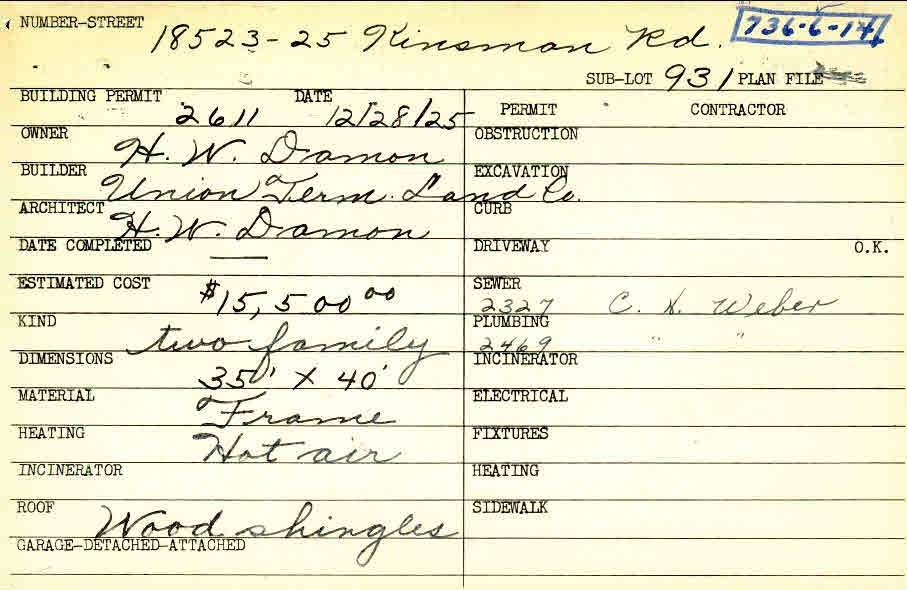 NUMBER-STREET 18523-25 Kinsman Rd. 736-6-14
SUB-LOT 931 PLAN FILE
BUILDING PERMIT 2611 DATE 12/28/25
OWNER H. W. Damon
BUILDER Union Term. Land Co.
ARCHITECT H. W. Damon
DATE COMPLETED —
ESTIMATED COST $15,500 00
KIND two family
DIMENSIONS 35' X 40'
MATERIAL Frame
HEATING Hot air
INCINERATOR
ROOF Wood shingles
GARAGE-DETACHED-ATTACHED
PERMIT CONTRACTOR
OBSTRUCTION
EXCAVATION
CURB
DRIVEWAY O.K.
SEWER
2327 C. H. Weber
PLUMBING
2469 " "
INCINERATOR
ELECTRICAL
FIXTURES
HEATING
SIDEWALK